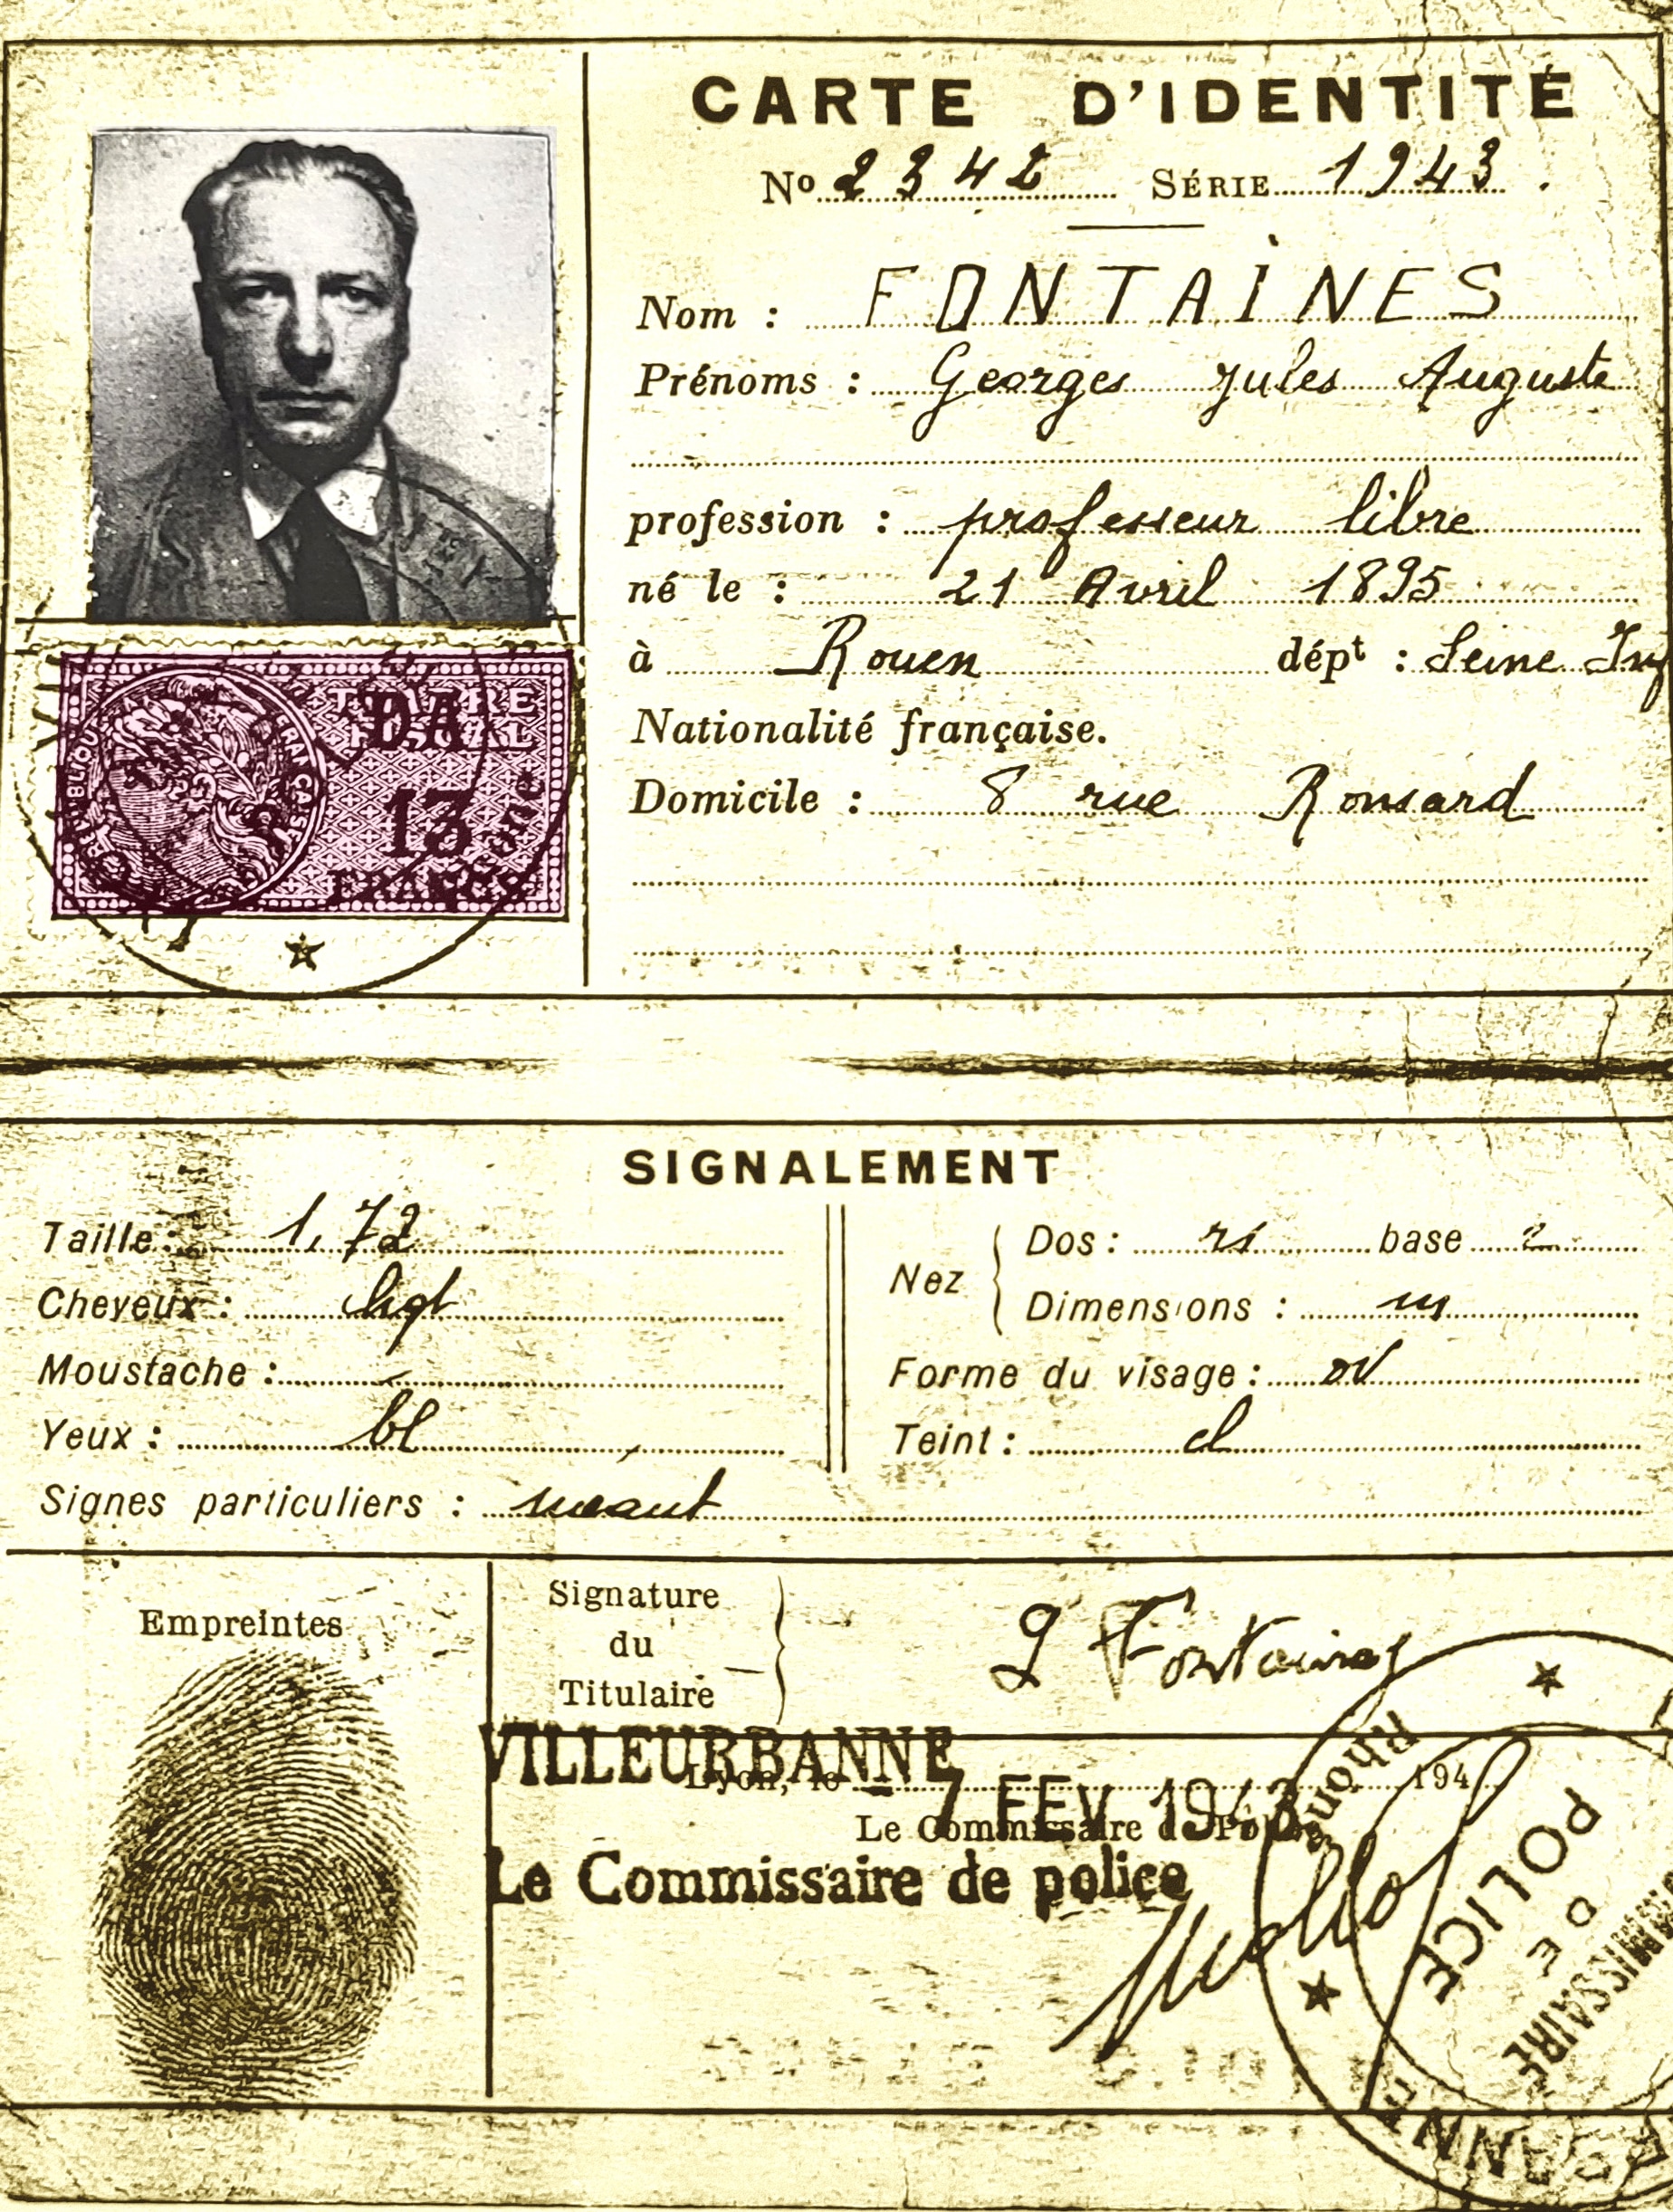 CARTE D'IDENTITÉ
No 2342 SÉRIE 1943.
Nom : FONTAINES
Prénoms : Georges Jules Auguste
profession : professeur libre
né le : 21 Avril 1895
à Rouen dépt : Seine Inf
Nationalité française.
Domicile : 8 rue Ronsard
RÉPUBLIQUE FRANÇAISE
TIMBRE
FISCAL
DA
13
FRANCS
SIGNALEMENT
Taille : 1,72
Cheveux :
Moustache : -
Yeux : bl
Signes particuliers : néant
Nez
Dos : base
Dimensions : m
Forme du visage : ov
Teint : cl
Empreintes
Signature
du
Titulaire
G Fontaines
VILLEURBANNE
Lyon, le 194
- 7 FEV 1943
Le Commissaire de Police
Le Commissaire de police
Rhône
POLICE
DE
COMMISSAIRE